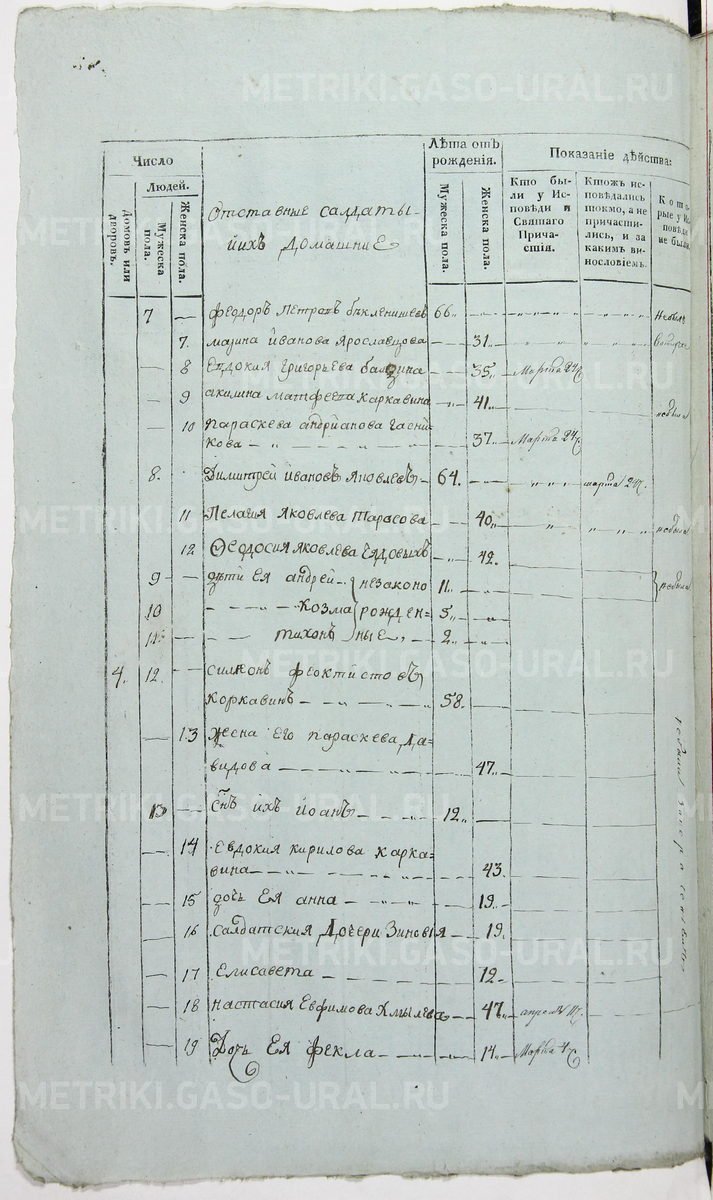 METRIKI.GASO-URAL.RU
Число
Людей.
Домовъ или дворовъ.
Мужеска пола.
Женска пола.
Отставные салдаты
ихъ домашние
Лѣта отъ рожденія.
Мужеска пола.
Женска пола.
Показаніе дѣйства:
Кто были у Исповѣди и Святаго Причастія.
Ктожъ исповѣдались токмо, а не причастились, и за какимъ винословіемъ.
Которые у Исповѣди не были.
7 — Феодоръ Петровъ 66
7. Ивановa Ярославцова 31
8 Евдокия Григорьева 35 Марта 24
9 акилина Матфеева Каркавина 41 небыла
10 Параскева андрианова
кова 37 Марта 24
8. Димитрей Ивановъ Яковлевъ 64. марта 24
11 Пелагия Яковлева Тарасова 40 небыла
12 Ѳеодосия Яковлева 42.
9 дѣти Ея андрей незаконо 11
10 Козма рожден- 5
11 тихонъ ные 2
4. 12. Симеонъ Феоктистовъ
Коркавинъ 58.
13 жена Его Параскева Да-
видова 47
13 Сنъ ихъ Иоанъ 12
14 Евдокия Кирилова Карка-
вина 43.
15 дочь Ея анна 19
16 Салдатския Дочери Зиновія 19
17 Елисавета 12
18 Настасия Евфимова Хмылева 47
19 Дочь Ея Фекла 14 Марта